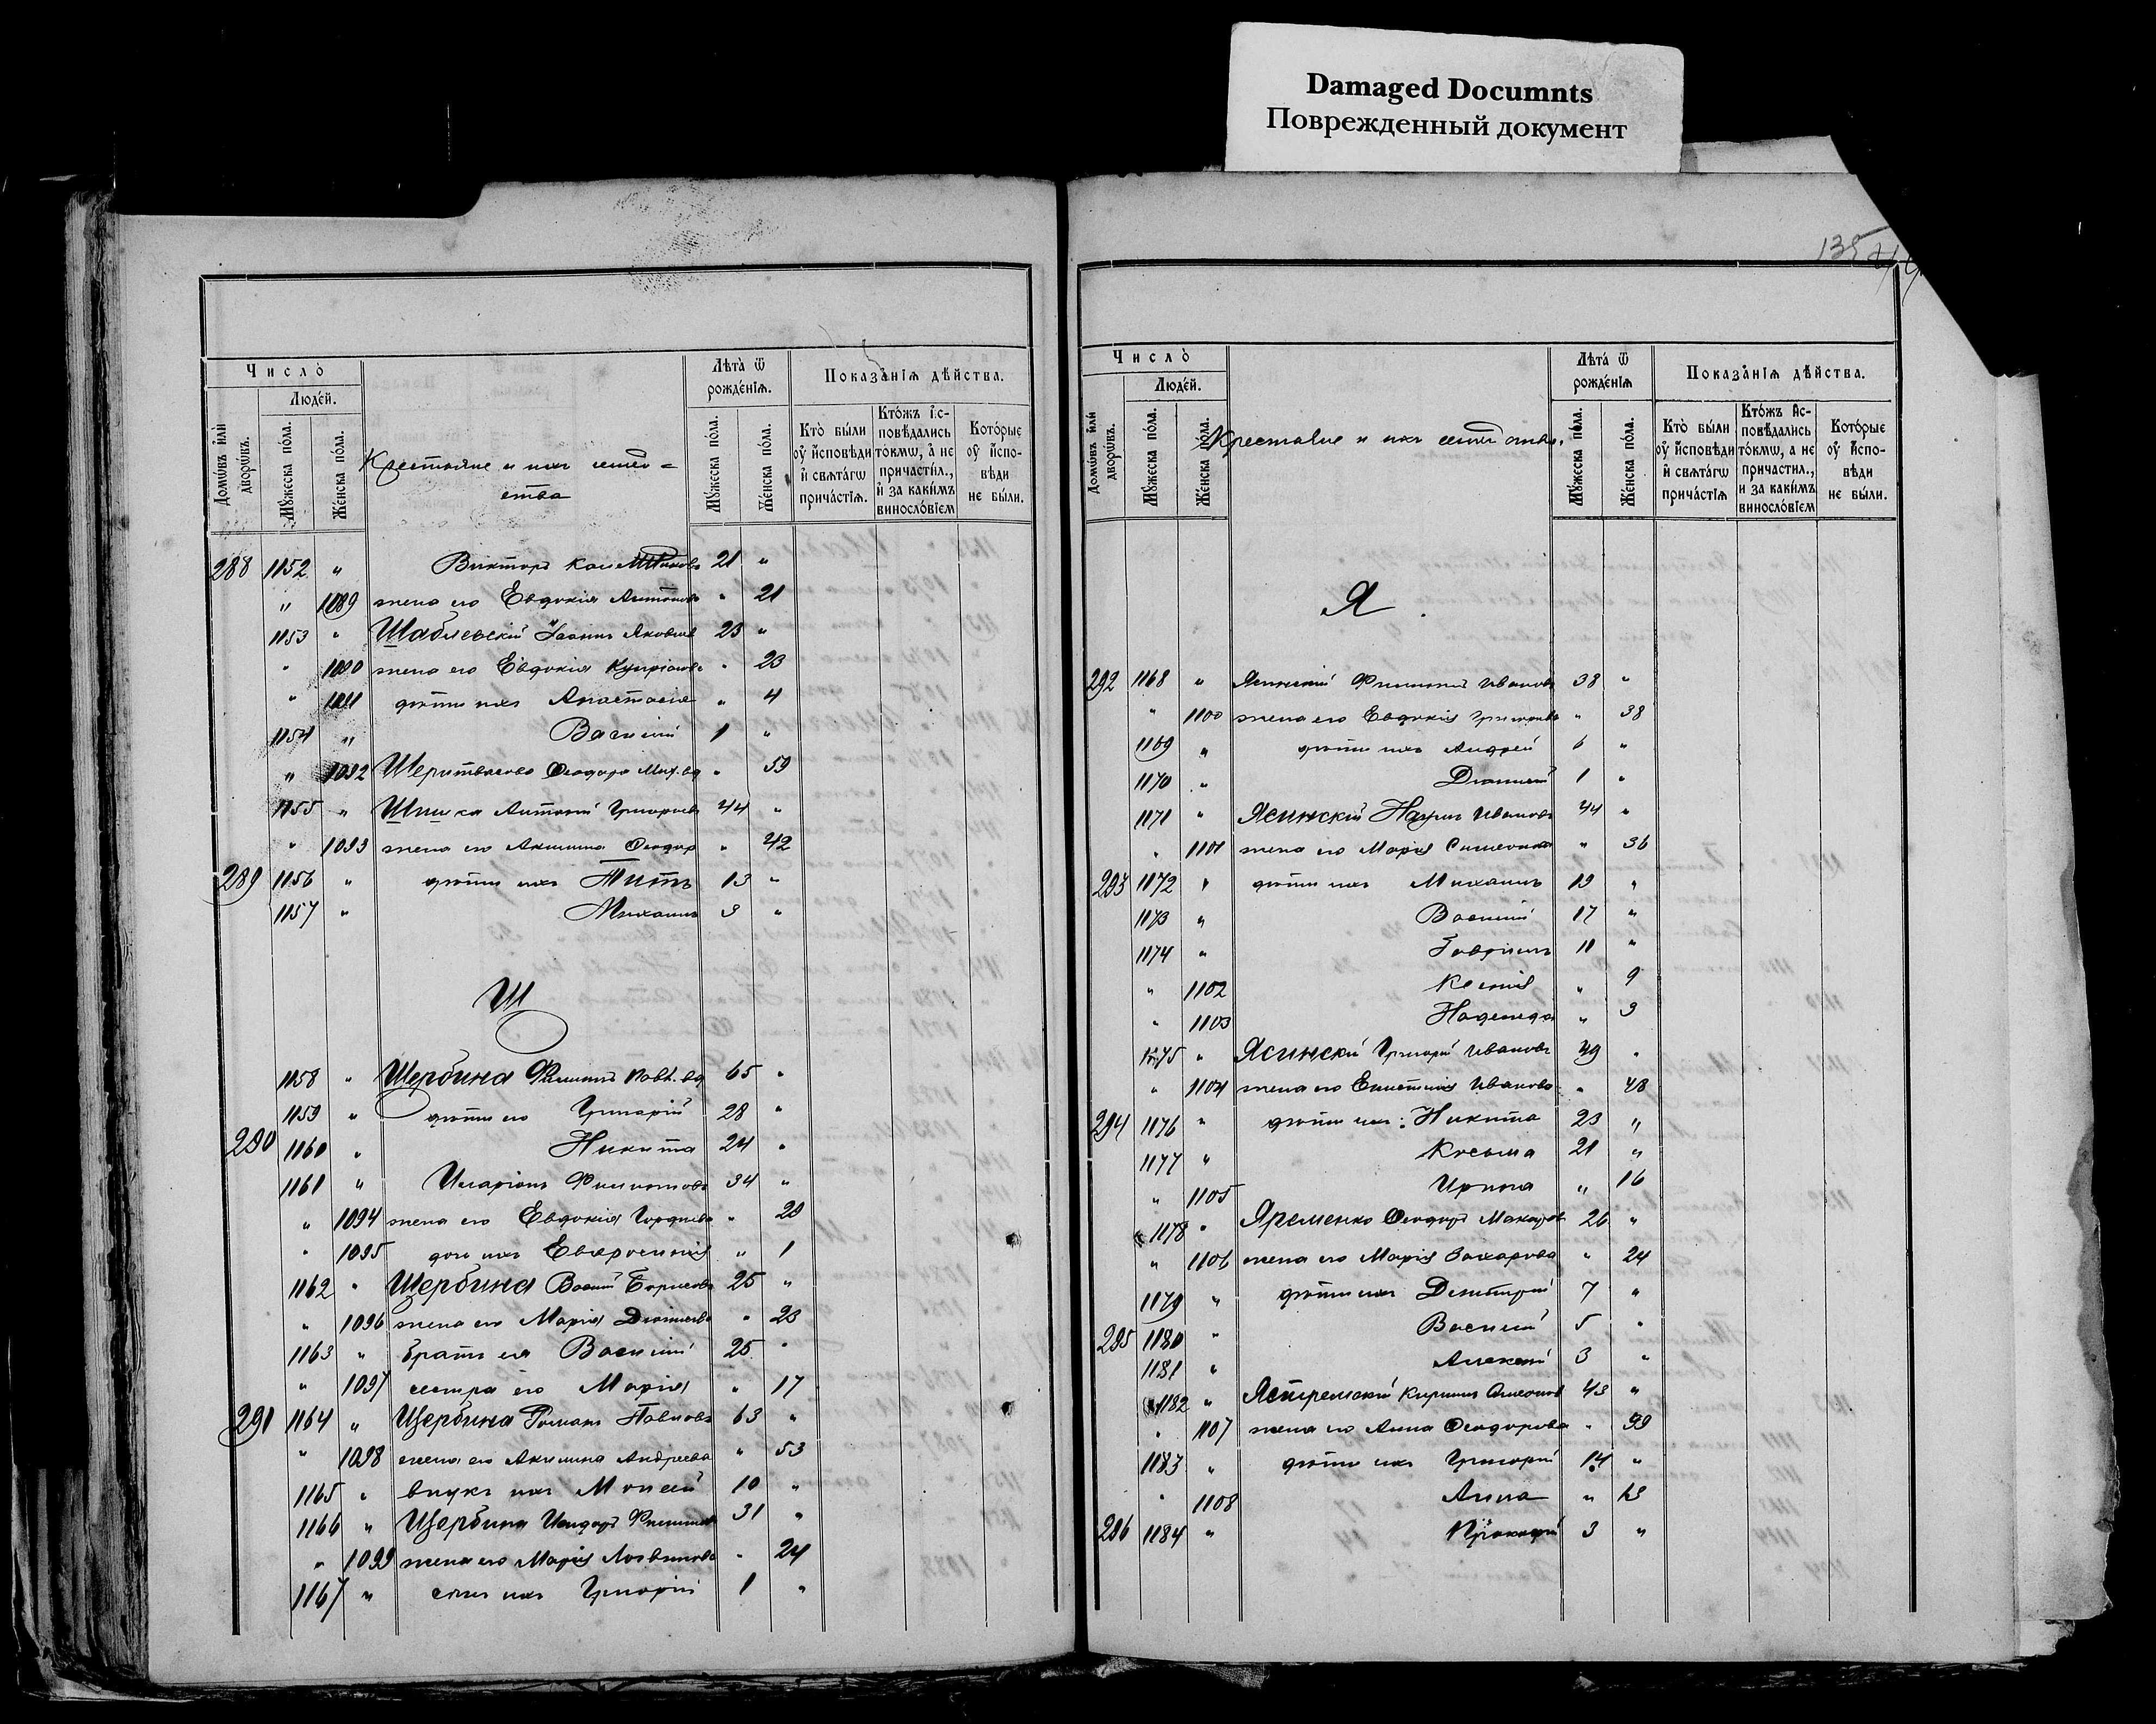 Damaged Documnts
Поврежденный документ
135
Число̀
Людéй.
Домѡ́въ и҆лѝ дворѡ́въ.
Мꙋ́жеска по́ла.
Же́нска по́ла.
Крестьяне и ихъ семей=
ства
Лѣта̀ ѿ рожде́нїѧ.
Мꙋ́жеска по́ла.
Же́нска по́ла.
Показа̑нїѧ дѣ́йства.
Кто̀ бы́ли оу҆ и҆сповѣди и҆ свѧта́гѡ прича́стїѧ.
Кто́жъ і҆споведались то́кмѡ, а҆ не причасти́л., и҆ за каки́мъ винослові́ем
Кото́рые оу҆ и҆сповѣди не бы́ли.
288 1152 " Викторъ 21 "
" 1089 жена его Евдокія Антонова " 21
1153 " Шаблевскій Іоаннъ Яковлев 23 "
" 1090 жена его Евдокія Кипріанова " 23
" 1091 дѣти ихъ Анастасія " 4
1154 " Василій 1 "
" 1092 Ѳеодора Мих. вд " 59
1155 " Шпи ка Антоній Григорьевъ 44 "
" 1093 жена его Акилина Ѳеодор " 42
289 1156 " дѣти ихъ Титъ 13 "
1157 " Михаилъ 3 "
Щ
1158 " Щербина Филиппъ Павл. вд 65 "
1159 " дѣти его Григорій 28 "
290 1160 " Никита 24 "
1161 " Иларіонъ Филипповъ 34 "
" 1094 жена его Евдокія Гордѣева " 29
" 1095 дочь ихъ Евфросинія " 1
1162 " Щербина Василій Борисовъ 25 "
" 1096 жена его Марія Діонисіева " 23
1163 " братъ его Василій 25 "
" 1097 сестра его Марія " 17
291 1164 " Щербина Романъ Павловъ 63 "
" 1098 жена его Акилина Андреева " 53
1165 " внукъ ихъ Моисей 10 "
1166 " Щербина Исидоръ Филиппов 31 "
" 1099 жена его Марія Логвинова " 24
1167 " сынъ ихъ Григорій 1 "
Число̀
Людéй.
Домѡ́въ и҆лѝ дворѡ́въ.
Мꙋ́жеска по́ла.
Же́нска по́ла.
Крестьяне и ихъ семейства.
Лѣта̀ ѿ рожде́нїѧ
Мꙋ́жеска по́ла.
Же́нска по́ла.
Показа̑нїѧ дѣ́йства.
Кто̀ бы́ли оу҆ и҆сповѣди и҆ свѧта́гѡ прича́стїѧ
Кто́жъ и҆споведались то́кмѡ, а не причастил., и за каки́мъ винослові́ем
Кото́рые оу҆ и҆сповѣди не бы́ли.
Я.
292 1168 " Ясинскій Филиппъ Ивановъ 38 "
" 1100 жена его Евдокія Григорьева " 38
1169 " дѣти ихъ Андрей 6 "
1170 " Діонисій 1 "
1171 " Ясинскій Наумъ Ивановъ 44 "
" 1101 жена его Марія Симеонова " 36
293 1172 " дѣти ихъ Михаилъ 19 "
1173 " Василій 17 "
1174 " Гавріилъ 11 "
" 1102 Ксенія " 9
" 1103 Надежда " 3
1175 " Ясинскій Григорій Ивановъ 49 "
" 1104 жена его Евпистимія Иванова " 48
294 1176 " дѣти ихъ: Никита 23 "
1177 " Косьма 21 "
" 1105 Ирина " 16
1178 " Яременко Ѳеодоръ Макаров 26 "
" 1106 жена его Марія Захарова " 24
1179 " дѣти ихъ Димитрій 7 "
295 1180 " Василій 5 "
1181 " Алексій 3 "
1182 " Ястремскій Кириллъ Симеонов 43 "
" 1107 жена его Анна Ѳеодорова " 39
1183 " дѣти ихъ Григорій 14 "
" 1108 Анна " 13
296 1184 " Прокофій 3 "